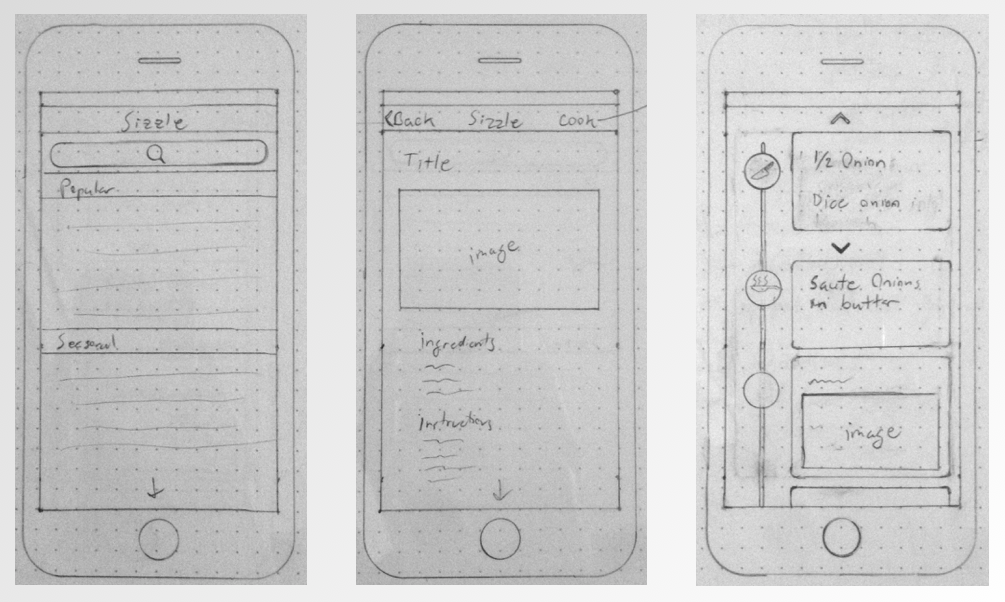 Sizzle
Popular
Seasonal
<Back Sizzle Cook
Title
image
ingredients
Instructions
1/2 Onion
Dice onion
Saute Onions
in butter
image